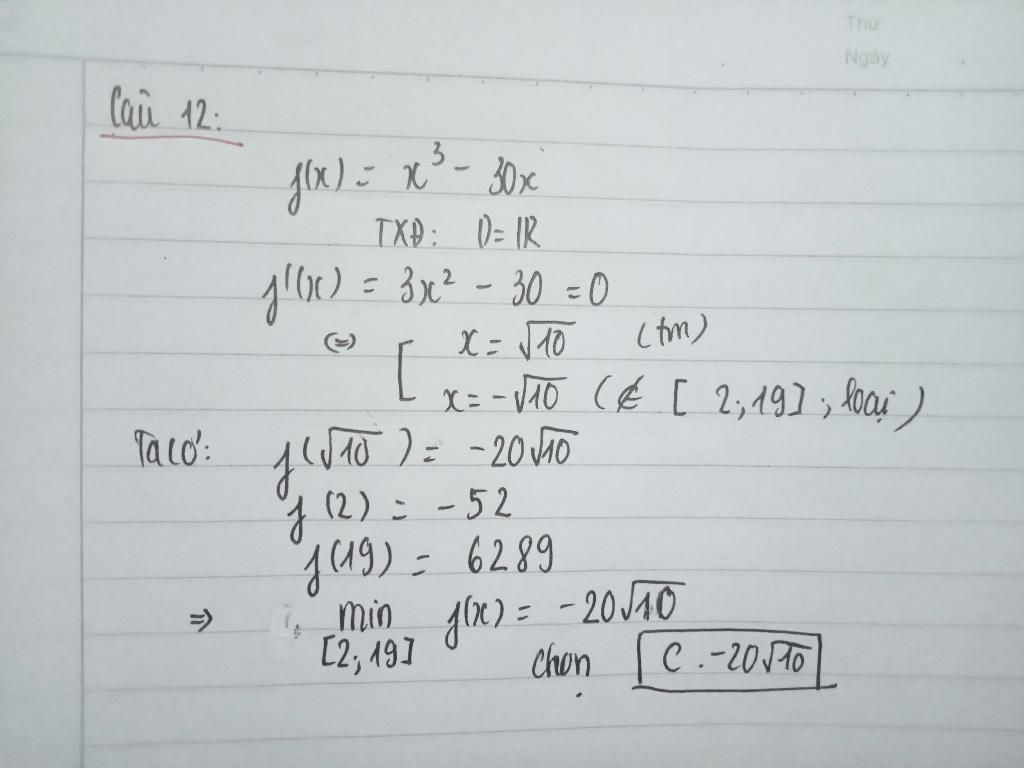 Thứ
Ngày
Câu 12:
f(x) = x³ - 30x
TXĐ: D = ℝ
f'(x) = 3x² - 30 = 0
(=) [ x = √10 (tm)
x = -√10 (∉ [2; 19]; loại)
Ta có: f(√10) = -20√10
f(2) = -52
f(19) = 6289
⇒ min f(x) = -20√10
[2; 19]
chọn C. -20√10